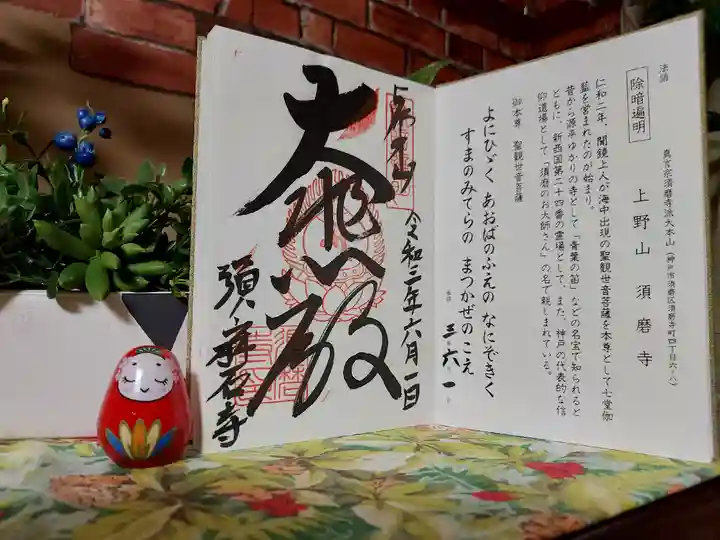 法語
除暗遍明
真言宗須磨寺派大本山(神戸市須磨区須磨寺町四丁目六ノ八)
上野山 須磨寺
仁和二年、聞鏡上人が海中出現の聖観世音菩薩を本尊として七堂伽
藍を営まれたのが始まり。
昔から源平ゆかりの寺として「青葉の笛」などの名宝で知られると
ともに、新西国第二十四番の霊場として、また、神戸の代表的な信
仰道場として「須磨のお大師さん」の名で親しまれている。
御本尊 聖観世音菩薩
よにひゞく あおばのふえの なにぞきく
すまのみてらの まつかぜのこえ
三・六・一
令和三年六月一日
大悲殿
須磨寺